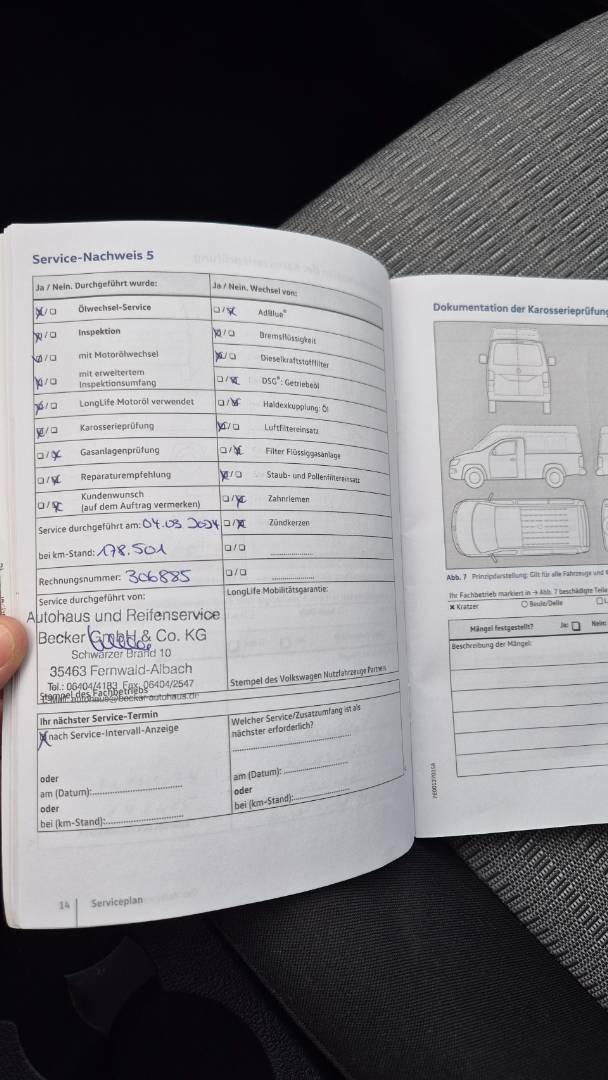 Service-Nachweis 5
Ja / Nein. Durchgeführt wurde:
Ölwechsel-Service
Inspektion
mit Motorölwechsel
mit erweitertem
Inspektionsumfang
LongLife Motoröl verwendet
Karosserieprüfung
Gasanlagenprüfung
Reparaturempfehlung
Kundenwunsch
(auf dem Auftrag vermerken)
Ja / Nein. Wechsel von:
AdBlue®
Bremsflüssigkeit
Dieselkraftstofffilter
DSG®: Getriebeöl
Haldexkupplung: Öl
Luftfiltereinsatz
Filter Flüssiggasanlage
Staub- und Pollenfiltereinsatz
Zahnriemen
Zündkerzen
Service durchgeführt am: 04.03 2024
bei km-Stand: 178.501
Rechnungsnummer: 306885
Service durchgeführt von:
Autohaus und Reifenservice
Becker GmbH & Co. KG
Schwarzer Brand 10
35463 Fernwald-Albach
Tel.: 06404/4183 Fax: 06404/2547
Stempel des Fachbetriebs
E-Mail: autohaus@becker-autohaus.de
LongLife Mobilitätsgarantie:
Stempel des Volkswagen Nutzfahrzeuge Partners
Ihr nächster Service-Termin
nach Service-Intervall-Anzeige
oder
am (Datum):
oder
bei (km-Stand):
Welcher Service/Zusatzumfang ist als
nächster erforderlich?
am (Datum):
oder
bei (km-Stand):
14 Serviceplan
Dokumentation der Karosserieprüfung
Abb. 7 Prinzipdarstellung: Gilt für alle Fahrzeuge und
Ihr Fachbetrieb markiert in → Abb. 7 beschädigte Teile
Kratzer
Beule/Delle
Mängel festgestellt? Ja: Nein:
Beschreibung der Mängel: